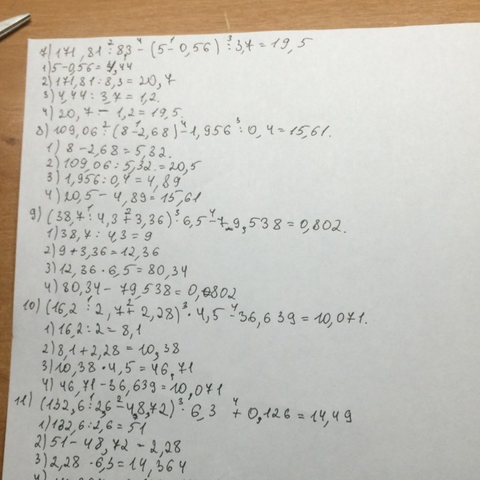 7) 171,81 : 8,3 - (5 - 0,56) : 3,7 = 19,5
1) 5 - 0,56 = 4,44
2) 171,81 : 8,3 = 20,7
3) 4,44 : 3,7 = 1,2.
4) 20,7 - 1,2 = 19,5.
8) 109,06 : (8 - 2,68) - 1,956 : 0,4 = 15,61.
1) 8 - 2,68 = 5,32.
2) 109,06 : 5,32 = 20,5
3) 1,956 : 0,4 = 4,89
4) 20,5 - 4,89 = 15,61
9) (38,7 : 4,3 + 3,36) · 6,5 - 79,538 = 0,802.
1) 38,7 : 4,3 = 9
2) 9 + 3,36 = 12,36
3) 12,36 · 6,5 = 80,34
4) 80,34 - 79,538 = 0,802
10) (16,2 : 2,7 + 2,28) · 4,5 - 36,639 = 10,071.
1) 16,2 : 2 = 8,1
2) 8,1 + 2,28 = 10,38
3) 10,38 · 4,5 = 46,71
4) 46,71 - 36,639 = 10,071
11) (132,6 : 2,6 - 48,72) · 6,3 + 0,126 = 14,49
1) 132,6 : 2,6 = 51
2) 51 - 48,72 - 2,28
3) 2,28 · 6,3 = 14,364